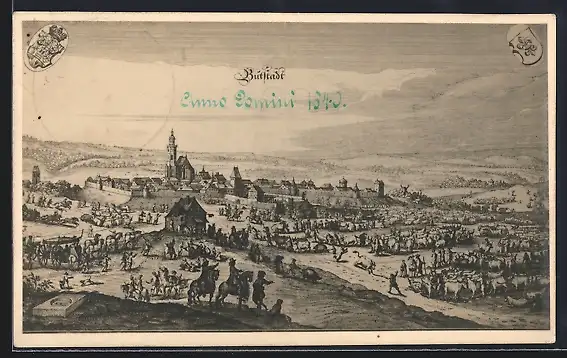 Bütstadt
Anno Domini 1640.